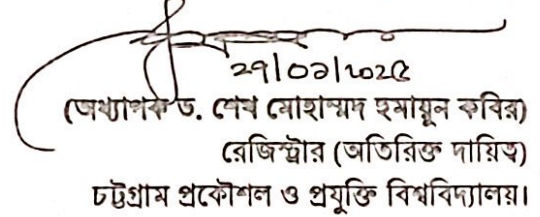 ২৭|০১|২০২৫
(অধ্যাপক ড. শেখ মোহাম্মদ হুমায়ুন কবির)
রেজিস্ট্রার (অতিরিক্ত দায়িত্ব)
চট্টগ্রাম প্রকৌশল ও প্রযুক্তি বিশ্ববিদ্যালয়।